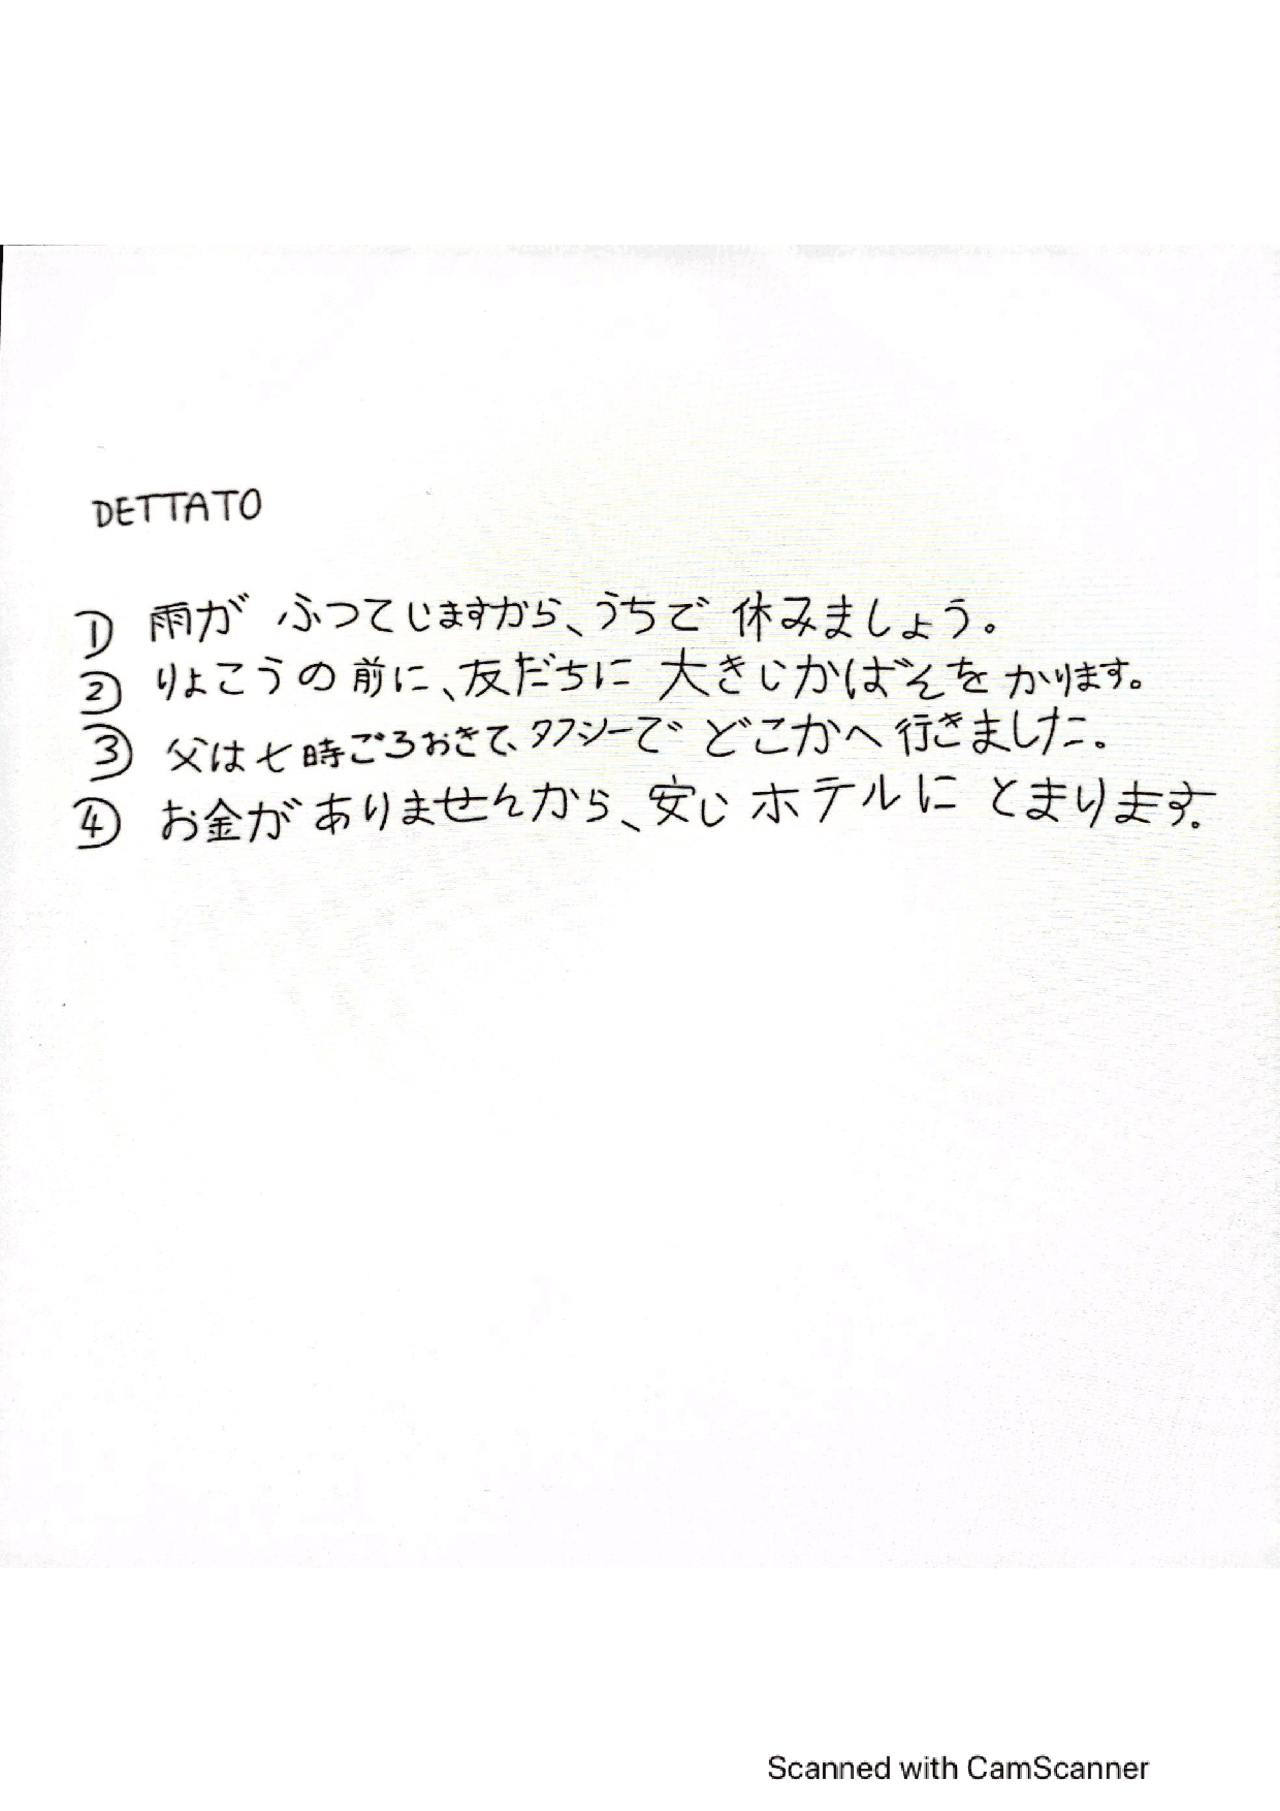 DETTATO
① 雨が ふつていますから、うちで 休みましょう。
② りょこうの前に、友だちに 大きいかばんを かります。
③ 父は七時ごろおきて、タフシーで どこかへ行きました。
④ お金がありませんから、安い ホテルに とまります。
Scanned with CamScanner